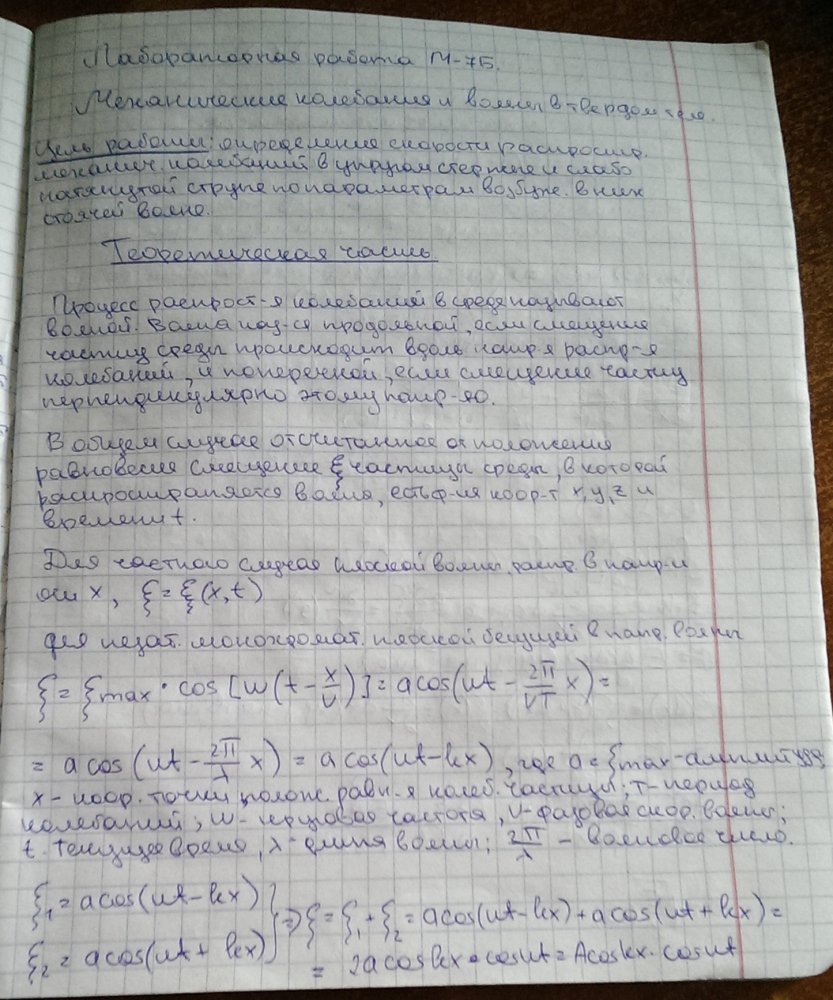 Лабораторная работа М-7Б.
Механические колебания и волны в твердом теле.
Цель работы: определение скорости распростр.
механич. колебаний в упругом стержне и слабо
натянутой струне по параметрам возбужд. в них
стоячей волне.
Теоретическая часть.
Процесс распрост-я колебаний в среде называют
волной. Волна наз-ся продольной, если смещение
частиц среды происходит вдоль напр-я распр-я
колебаний, и поперечной, если смещение частиц
перпендикулярно этому напр-ю.
В общем случае отсчитанное от положения
равновесия смещение ξ частицы среды, в которой
распространяется волна, есть ф-ия коор-т x, y, z и
времени t.
Для частного случая плоской волны, распр. в напр-и
оси x, ξ = ξ(x,t)
Для незат. монохромат. плоской бегущей в напр. волны
ξ = ξmax · cos [ω(t - x/υ)] = a cos(ωt - 2π/υT x) =
= a cos (ωt - 2π/λ x) = a cos(ωt - kx), где a = ξmax - амплитуда;
x - коор. точки полож. равн-я колеб. частицы; T - период
колебаний; ω - круговая частота, υ - фазовая скор. волны;
t - текущее время, λ - длина волны; 2π/λ - волновое число.
ξ1 = a cos(ωt - kx) } => ξ = ξ1 + ξ2 = a cos(ωt - kx) + a cos(ωt + kx) =
ξ2 = a cos(ωt + kx) } = 2a cos kx · cos ωt = A cos kx · cos ωt